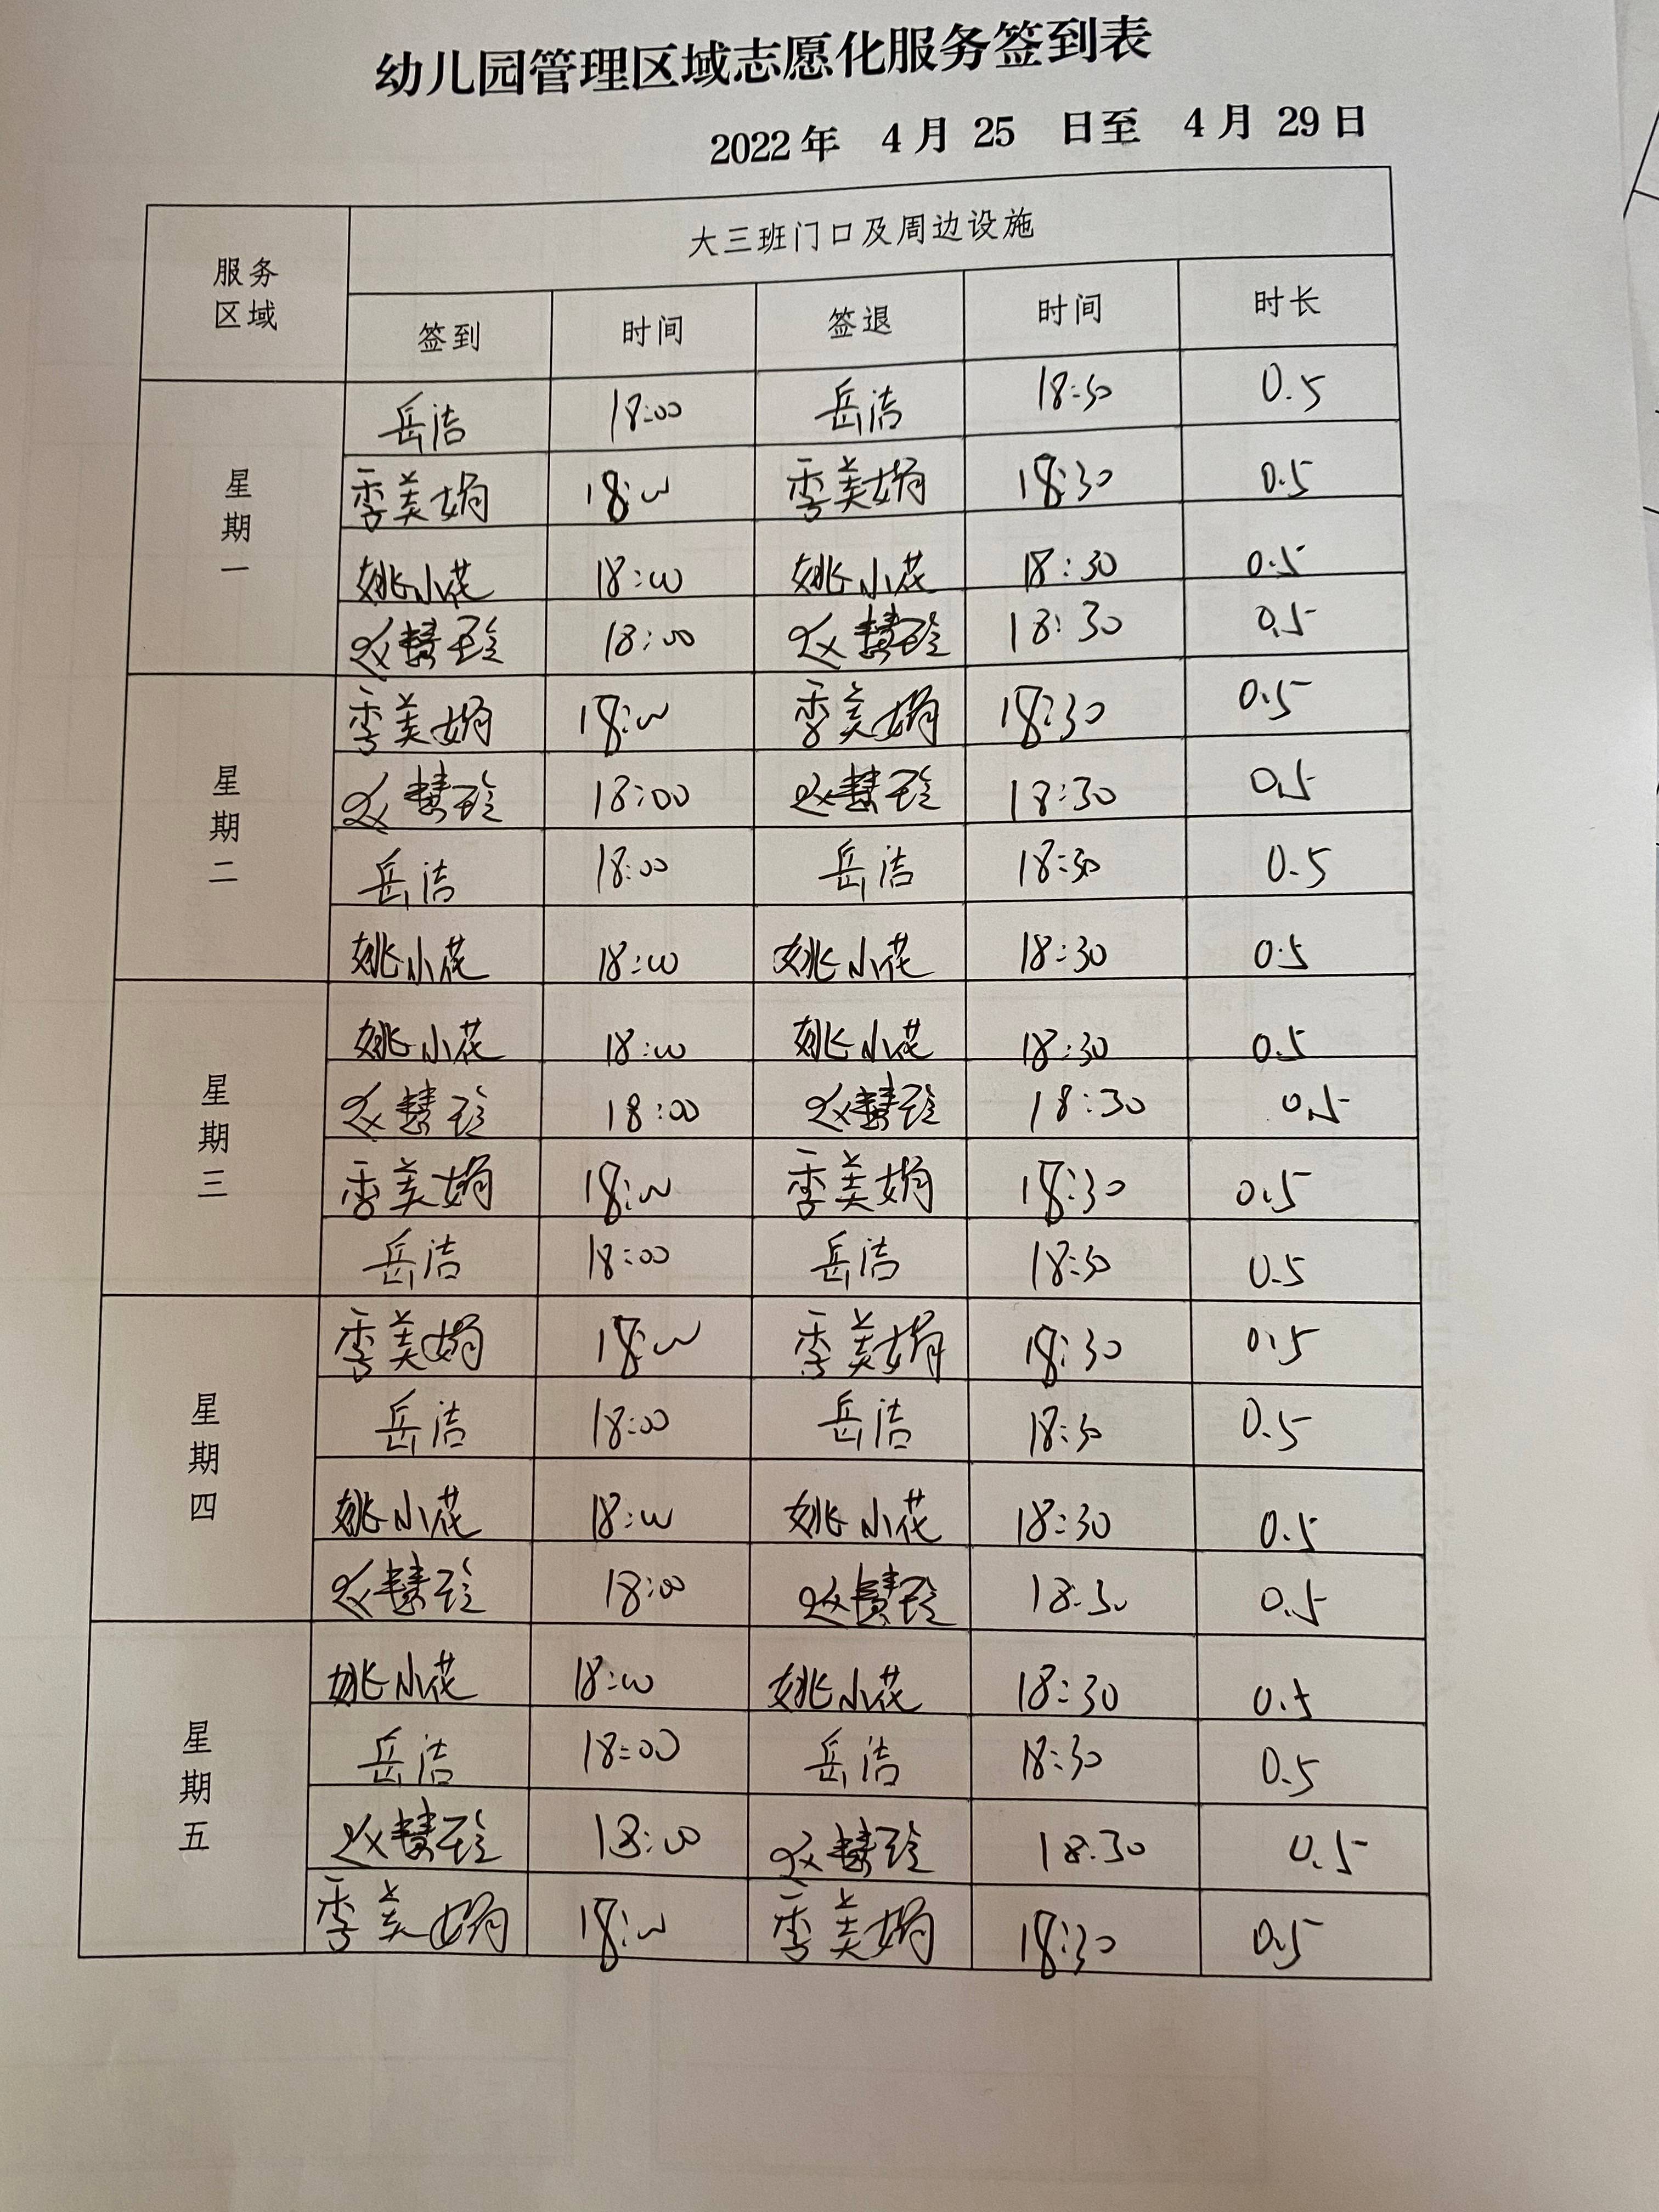 幼儿园管理区域志愿化服务签到表
2022年 4月 25 日至 4月 29日
服务区域 大三班门口及周边设施
签到 时间 签退 时间 时长
星期一
岳洁 18:00 岳洁 18:30 0.5
季美娟 18:00 季美娟 18:30 0.5
姚小花 18:00 姚小花 18:30 0.5
赵慧玲 18:00 赵慧玲 18:30 0.5
星期二
季美娟 18:00 季美娟 18:30 0.5
赵慧玲 18:00 赵慧玲 18:30 0.5
岳洁 18:00 岳洁 18:30 0.5
姚小花 18:00 姚小花 18:30 0.5
星期三
姚小花 18:00 姚小花 18:30 0.5
赵慧玲 18:00 赵慧玲 18:30 0.5
季美娟 18:00 季美娟 18:30 0.5
岳洁 18:00 岳洁 18:30 0.5
星期四
季美娟 18:00 季美娟 18:30 0.5
岳洁 18:00 岳洁 18:30 0.5
姚小花 18:00 姚小花 18:30 0.5
赵慧玲 18:00 赵慧玲 18:30 0.5
星期五
姚小花 18:00 姚小花 18:30 0.5
岳洁 18:00 岳洁 18:30 0.5
赵慧玲 18:00 赵慧玲 18:30 0.5
季美娟 18:00 季美娟 18:30 0.5